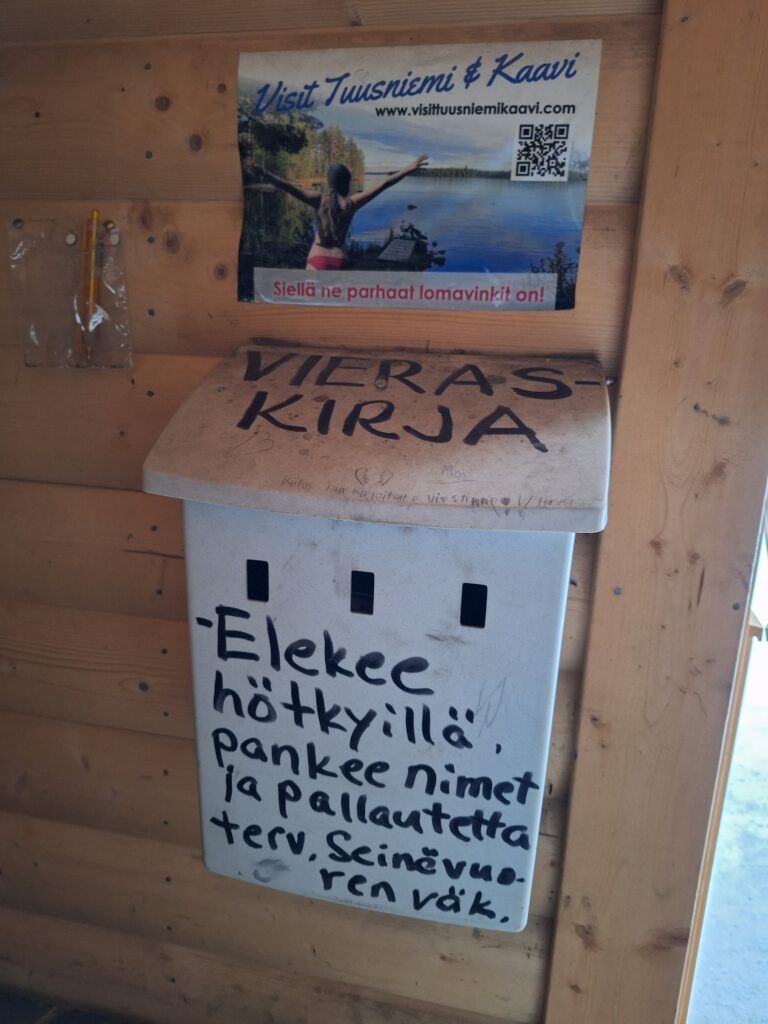 Visit Tuusniemi & Kaavi
www.visittuusniemikaavi.com
Siellä ne parhaat lomavinkit on!
VIERAS-
KIRJA
Moi
-Elekee
hötkyillä,
pankee nimet
ja pallautetta
terv. Seinävuo-
ren väk.